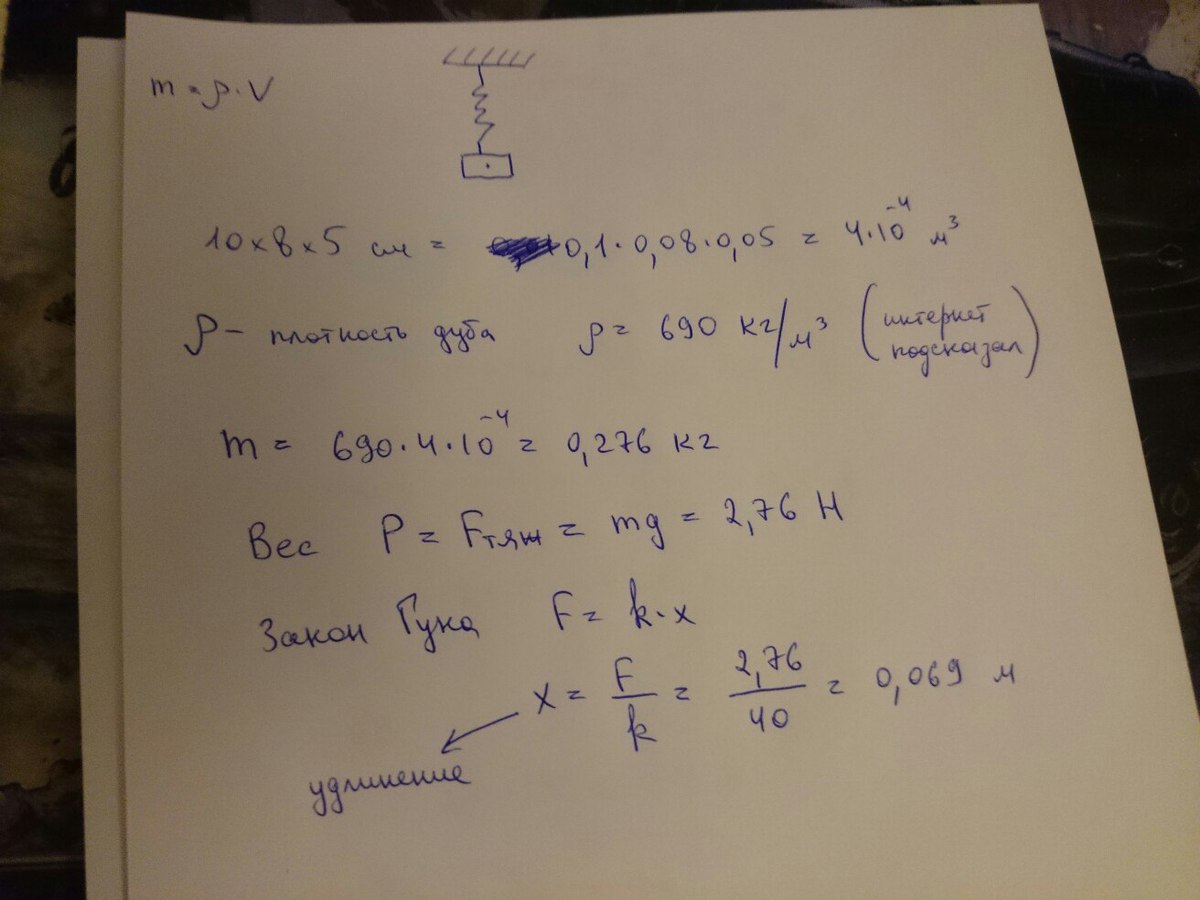 m = ρ·V
10×8×5 см = 0,1·0,08·0,05 = 4·10⁻⁴ м³
ρ – плотность дуба ρ = 690 кг/м³ (интернет подсказал)
m = 690·4·10⁻⁴ = 0,276 кг
Вес P = Fтяж = mg = 2,76 Н
Закон Гука F = k·x
x = F/k = 2,76/40 = 0,069 м
удлинение